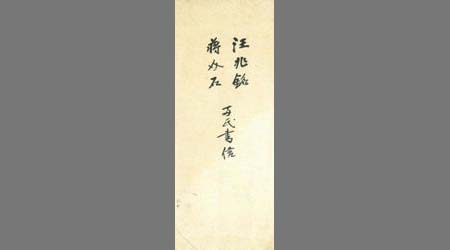 汪兆銘
蔣介石
両氏書信